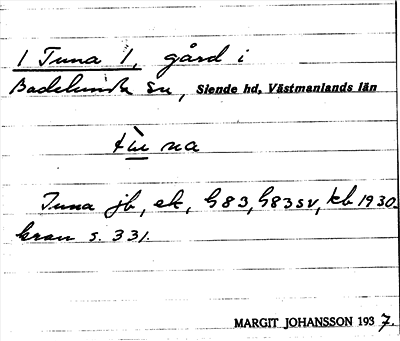 1 Tuna 1, gård i
Badelunda sn, Siende hd, Västmanlands län
tùna
Tuna jb, ek, G83, G83SV, kb 1930.
kran s. 331.
MARGIT JOHANSSON 1937.